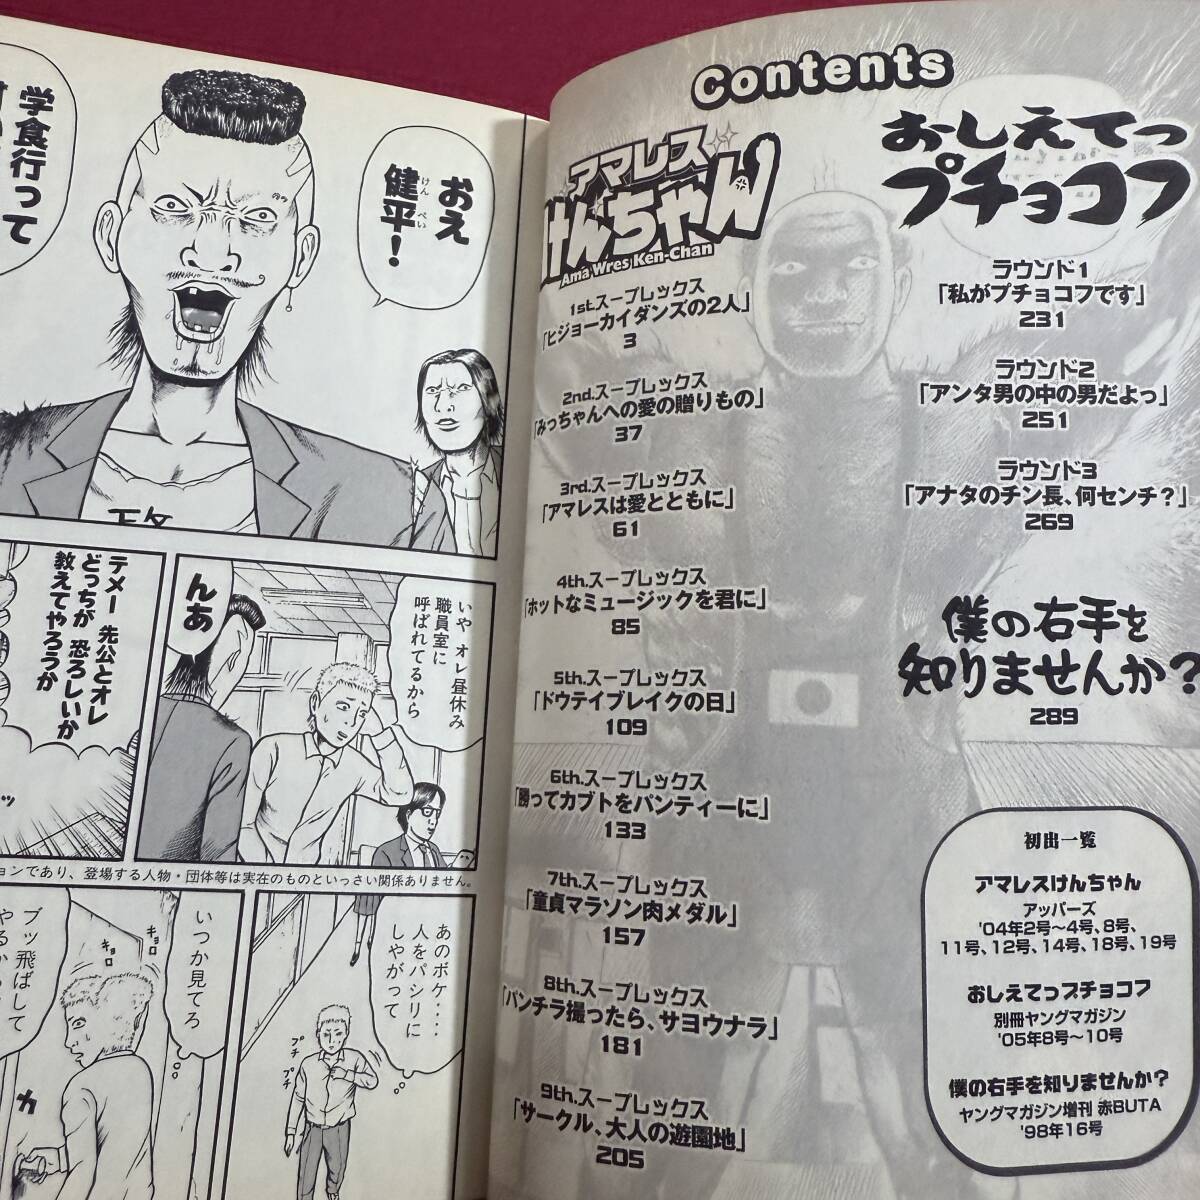 おえ
健平!
けん
ぺい
学食行って
いや オレ昼休み
職員室に
呼ばれてるから
んあ
テメー 先公とオレ
どっちが 恐ろしいか
教えてやろうか
ョンであり、登場する人物・団体等は実在のものといっさい関係ありません。
あのボケ・・・・
人をパシリに
しやがって
プチ
プチ
いつか見てろ
ブッ飛ばして
キョロ
キョロ
カ
Contents
アマレス
けんちゃん
Ama Wres Ken-Chan
1st.スープレックス
「ヒジョーカイダンズの2人」
3
2nd.スープレックス
「みっちゃんへの愛の贈りもの」
37
3rd.スープレックス
「アマレスは愛とともに」
61
4th.スープレックス
「ホットなミュージックを君に」
85
5th.スープレックス
「ドウテイブレイクの日」
109
6th.スープレックス
「勝ってカブトをパンティーに」
133
7th.スープレックス
「童貞マラソン肉メダル」
157
8th.スープレックス
「パンチラ撮ったら、サヨウナラ」
181
9th.スープレックス
「サークル、大人の遊園地」
205
おしえてっ
プチョコフ
ラウンド1
「私がプチョコフです」
231
ラウンド2
「アンタ男の中の男だよっ」
251
ラウンド3
「アナタのチン長、何センチ?」
269
僕の右手を
知りませんか?
289
初出一覧
アマレスけんちゃん
アッパーズ
'04年2号〜4号、8号、
11号、12号、14号、18号、19号
おしえてっプチョコフ
別冊ヤングマガジン
'05年8号〜10号
僕の右手を知りませんか?
ヤングマガジン増刊 赤BUTA
'98年16号